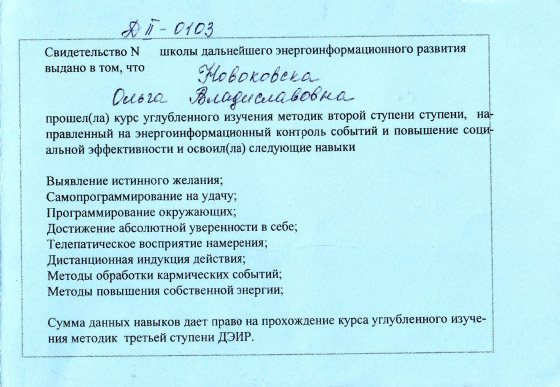 ДII-0103
Свидетельство N школы дальнейшего энергоинформационного развития
выдано в том, что
Новоковска
Ольга Владиславовна
прошел(ла) курс углубленного изучения методик второй ступени ступени, на-
правленный на энергоинформационный контроль событий и повышение соци-
альной эффективности и освоил(ла) следующие навыки
Выявление истинного желания;
Самопрограммирование на удачу;
Программирование окружающих;
Достижение абсолютной уверенности в себе;
Телепатическое восприятие намерения;
Дистанционная индукция действия;
Методы обработки кармических событий;
Методы повышения собственной энергии;
Сумма данных навыков дает право на прохождение курса углубленного изуче-
ния методик третьей ступени ДЭИР.